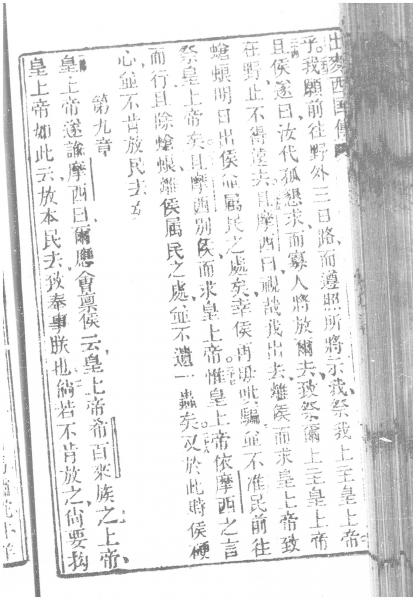 出麥西國傳
乎、我願前往野外三日路、而遵照所將示我、祭我上主皇上帝
且侯遂曰、汝代孤懇求、而寡人將放爾去、致祭爾上主皇上帝
在野、止不得遠去、且摩西曰、視哉我出去離侯、而求皇上帝、致
螥蠅明日出侯屬民之處矣、幸侯再毋騙、並不准民前往
祭皇上帝矣、且摩西別侯、而求皇上帝、惟皇上帝依摩西之言
而行、且除螥蠅離侯屬民之處、並不遺一蟲矣、又於此時侯硬
心並不肯放民去
第九章
皇上帝遂諭摩西曰、爾應會禀侯云、皇上帝希百來族之上帝、
皇上帝如此云、放本民去、致奉事朕也、倘若不肯放之、尚要拘